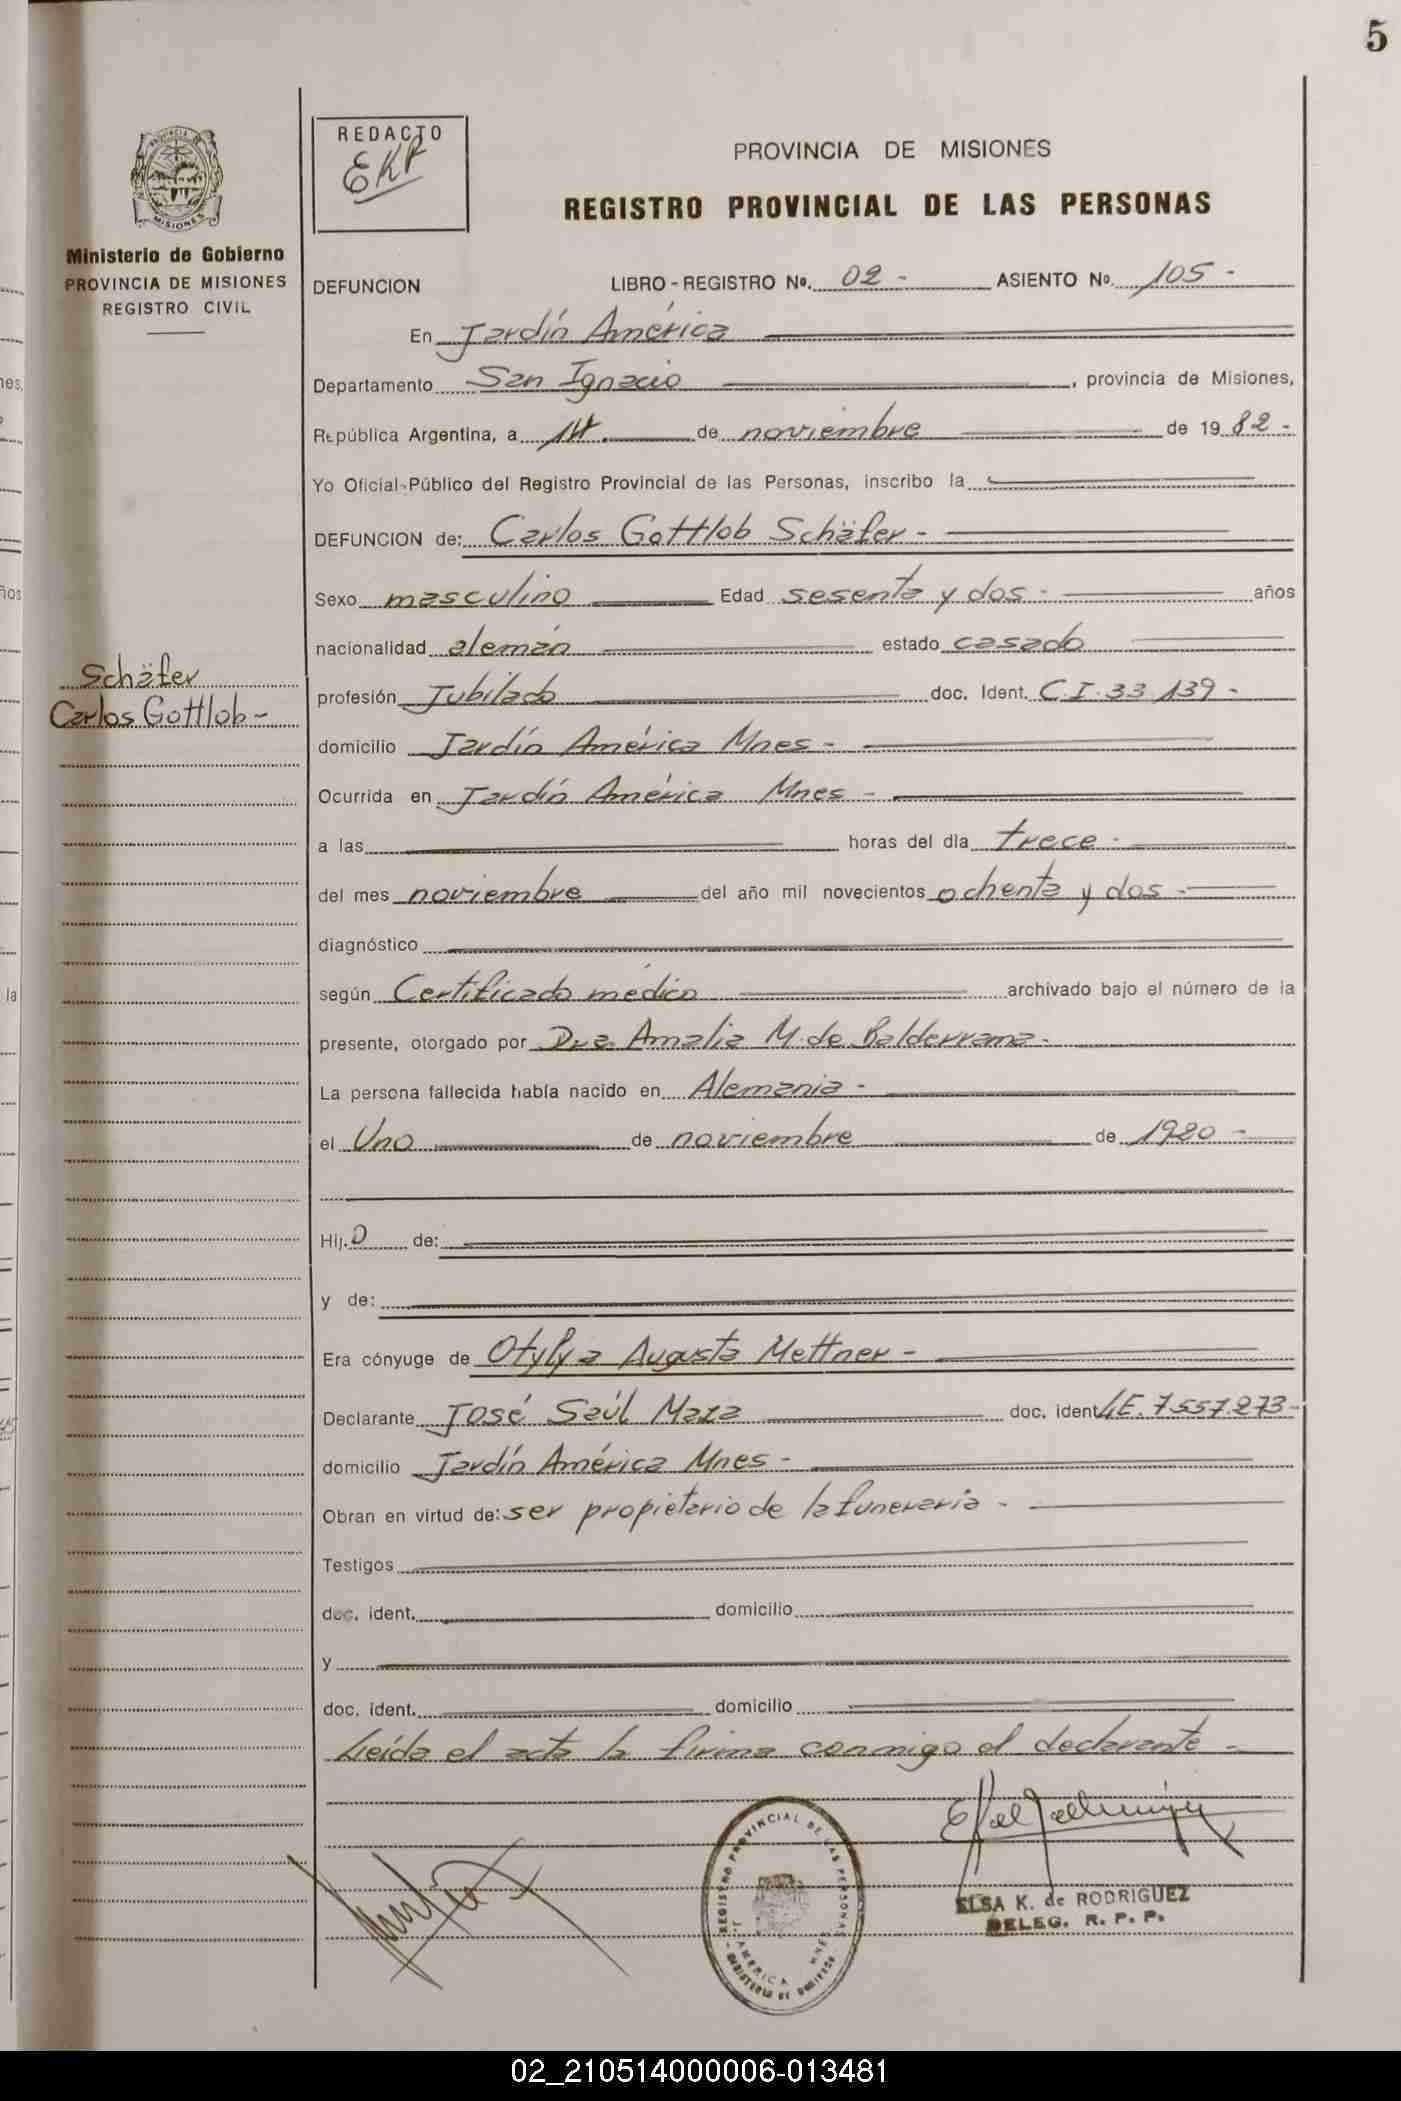 5
REDACTO
EKR
PROVINCIA DE MISIONES
REGISTRO PROVINCIAL DE LAS PERSONAS
PROVINCIA DE
MISIONES
Ministerio de Gobierno
PROVINCIA DE MISIONES
REGISTRO CIVIL
DEFUNCION LIBRO - REGISTRO Nº. 02 - ASIENTO Nº. 105 -
En Jardín América
Departamento San Ignacio , provincia de Misiones,
República Argentina, a 14. de noviembre de 1982 -
Yo Oficial Público del Registro Provincial de las Personas, inscribo la
DEFUNCION de: Carlos Gottlob Schäfer -
Sexo masculino Edad sesenta y dos - años
nacionalidad alemán estado casado
Schäfer
Carlos Gottlob -
profesión Jubilado doc. Ident. C.I. 33.139 -
domicilio Jardín América Mnes -
Ocurrida en Jardín América Mnes -
a las horas del día trece -
del mes noviembre del año mil novecientos ochenta y dos -
diagnóstico
según Certificado médico archivado bajo el número de la
presente, otorgado por Dra. Amalia M. de Balderrama -
La persona fallecida había nacido en Alemania -
el Uno de noviembre de 1920 -
Hij.o de:
y de:
Era cónyuge de Otylya Augusta Mettner -
Declarante José Saúl Maza doc. ident. L.E. 7.557.273 -
domicilio Jardín América Mnes -
Obran en virtud de: ser propietario de la funeraria -
Testigos
doc. ident. domicilio
y
doc. ident. domicilio
Leída el acta la firma conmigo el declarante -
REGISTRO PROVINCIAL DE LAS PERSONAS
J. AMERICA - MNES
MINISTERIO DE GOBIERNO
ELSA K. de RODRIGUEZ
DELEG. R. P. P.
02_210514000006-013481